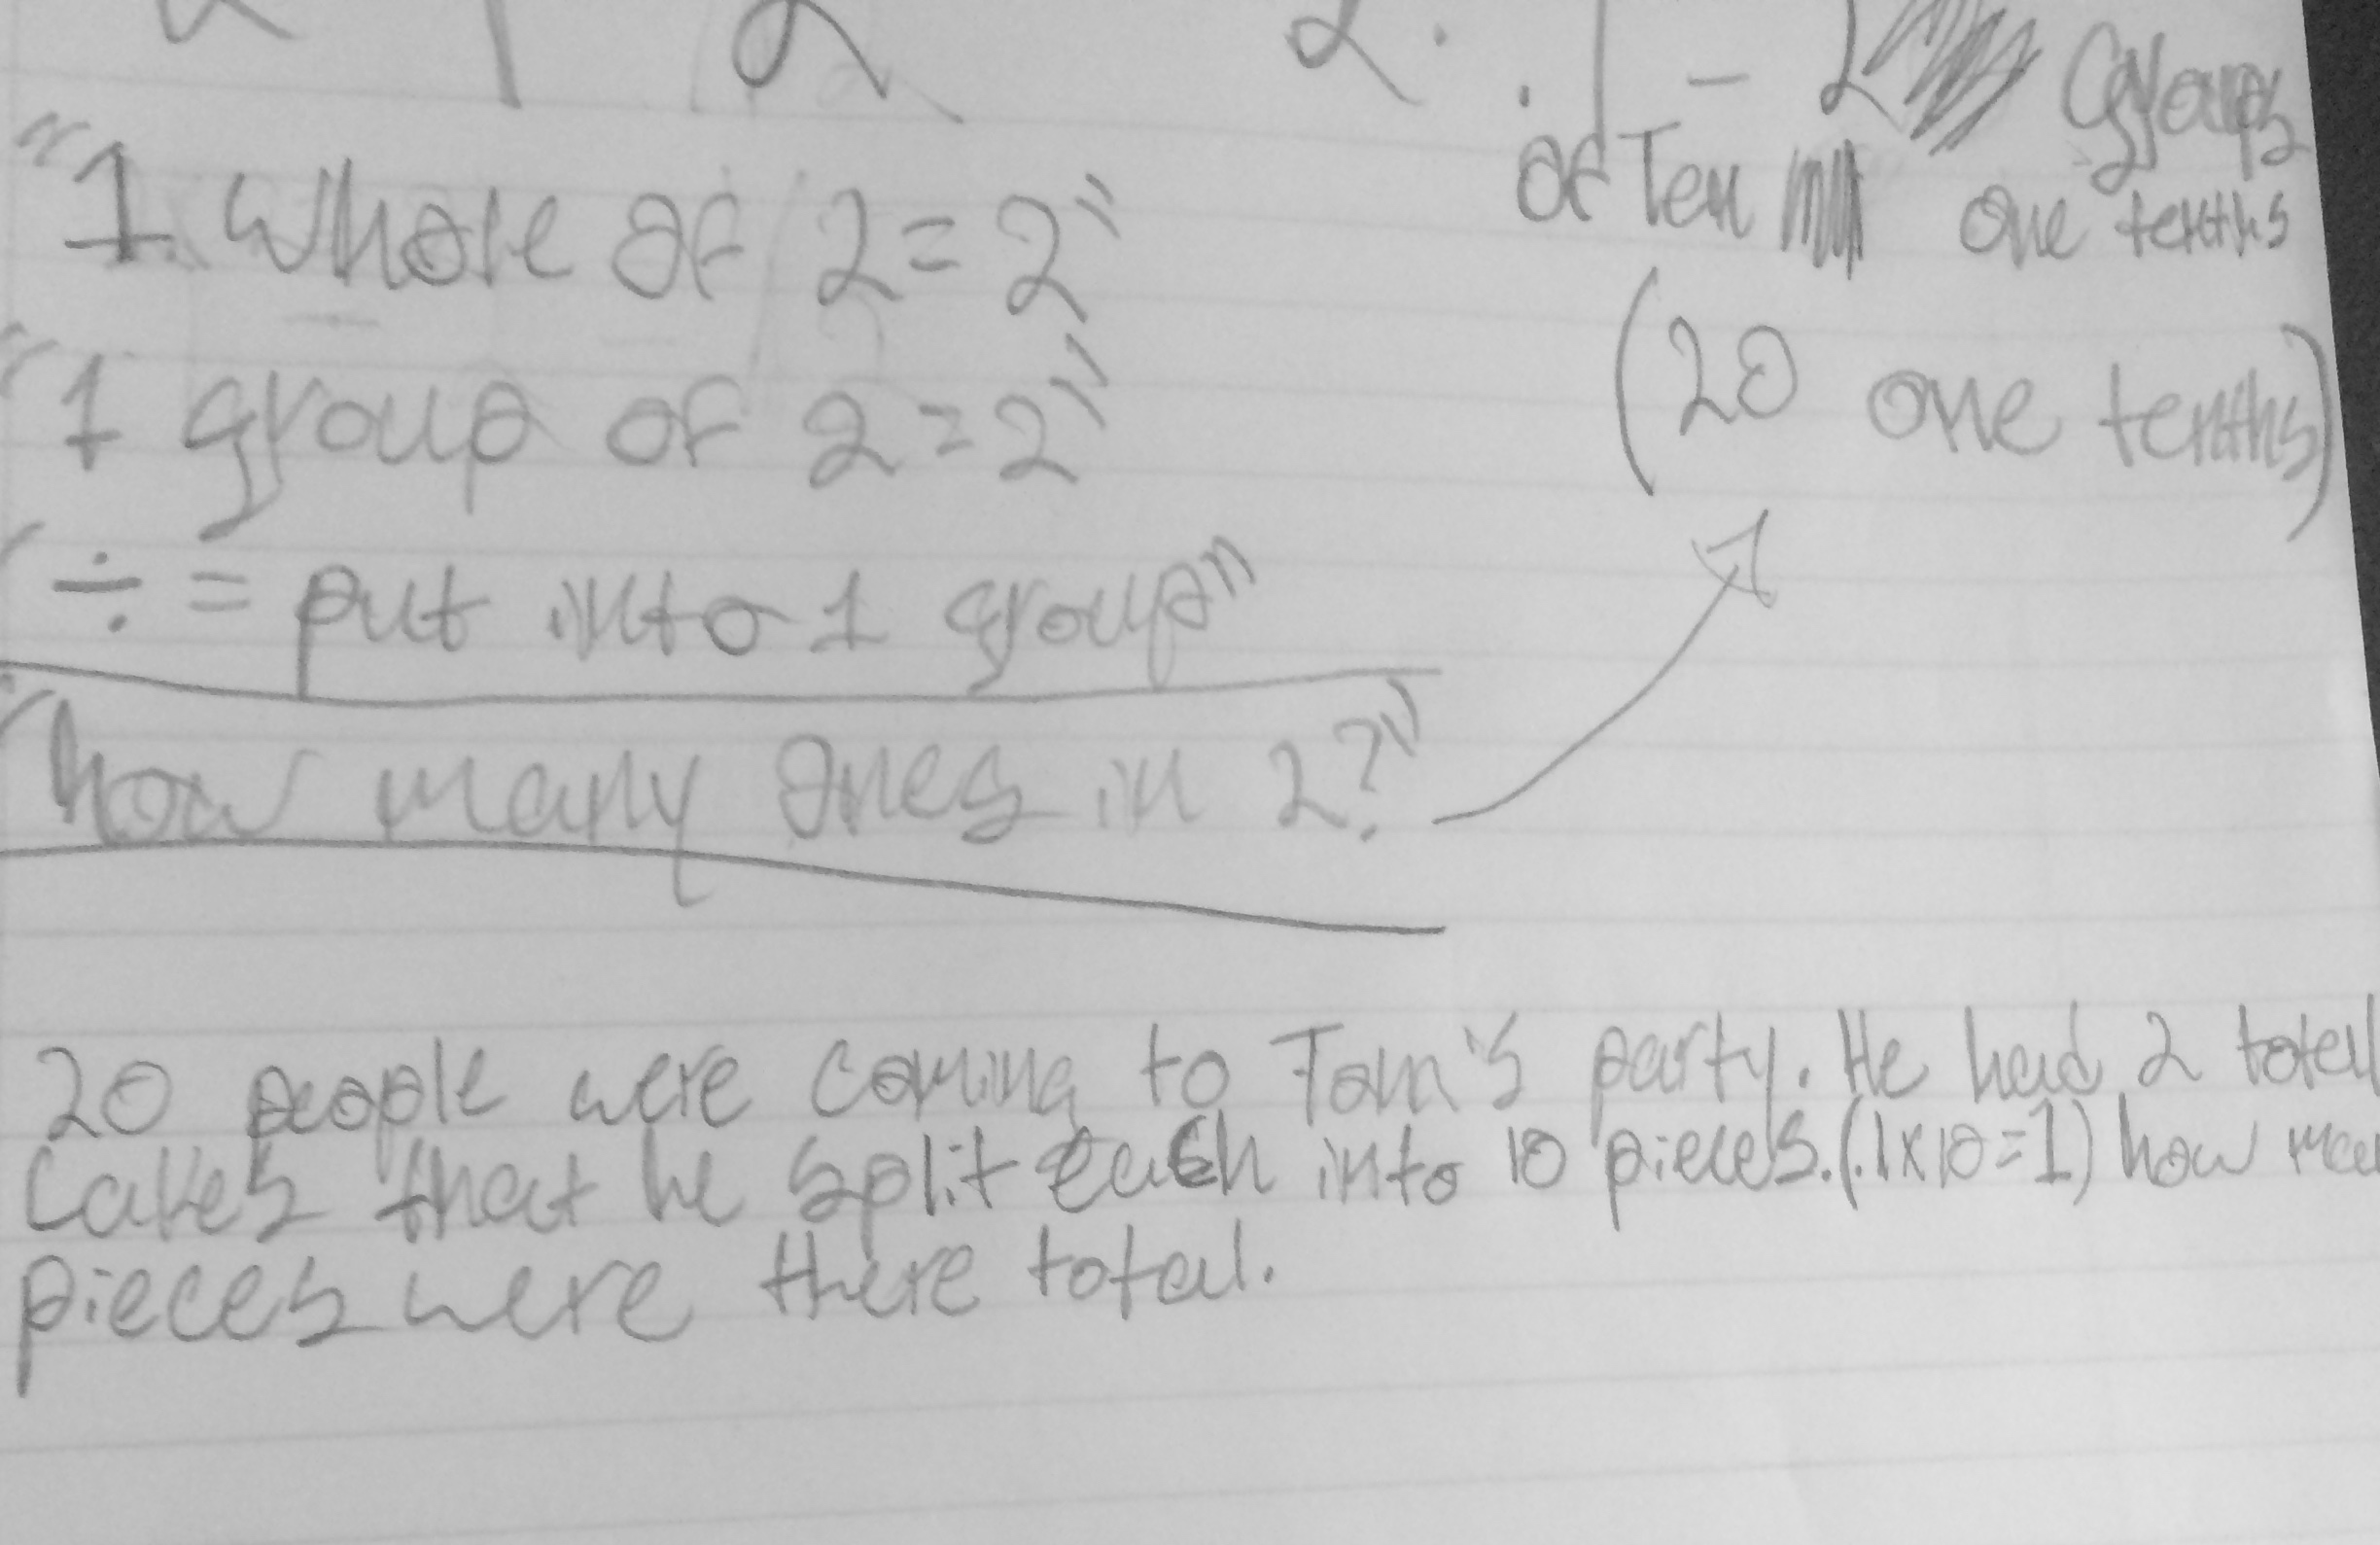 2 ÷ .1 = 2 Groups
of Ten one tenths
(20 one tenths)
"1 whole of 2 = 2"
"1 group of 2 = 2"
"÷ = put into 1 group"
"how many ones in 2?"
20 people were coming to Tom's party. He had 2 total
Cakes that he split each into 10 pieces. (.1x10=1) how
pieces were there total.